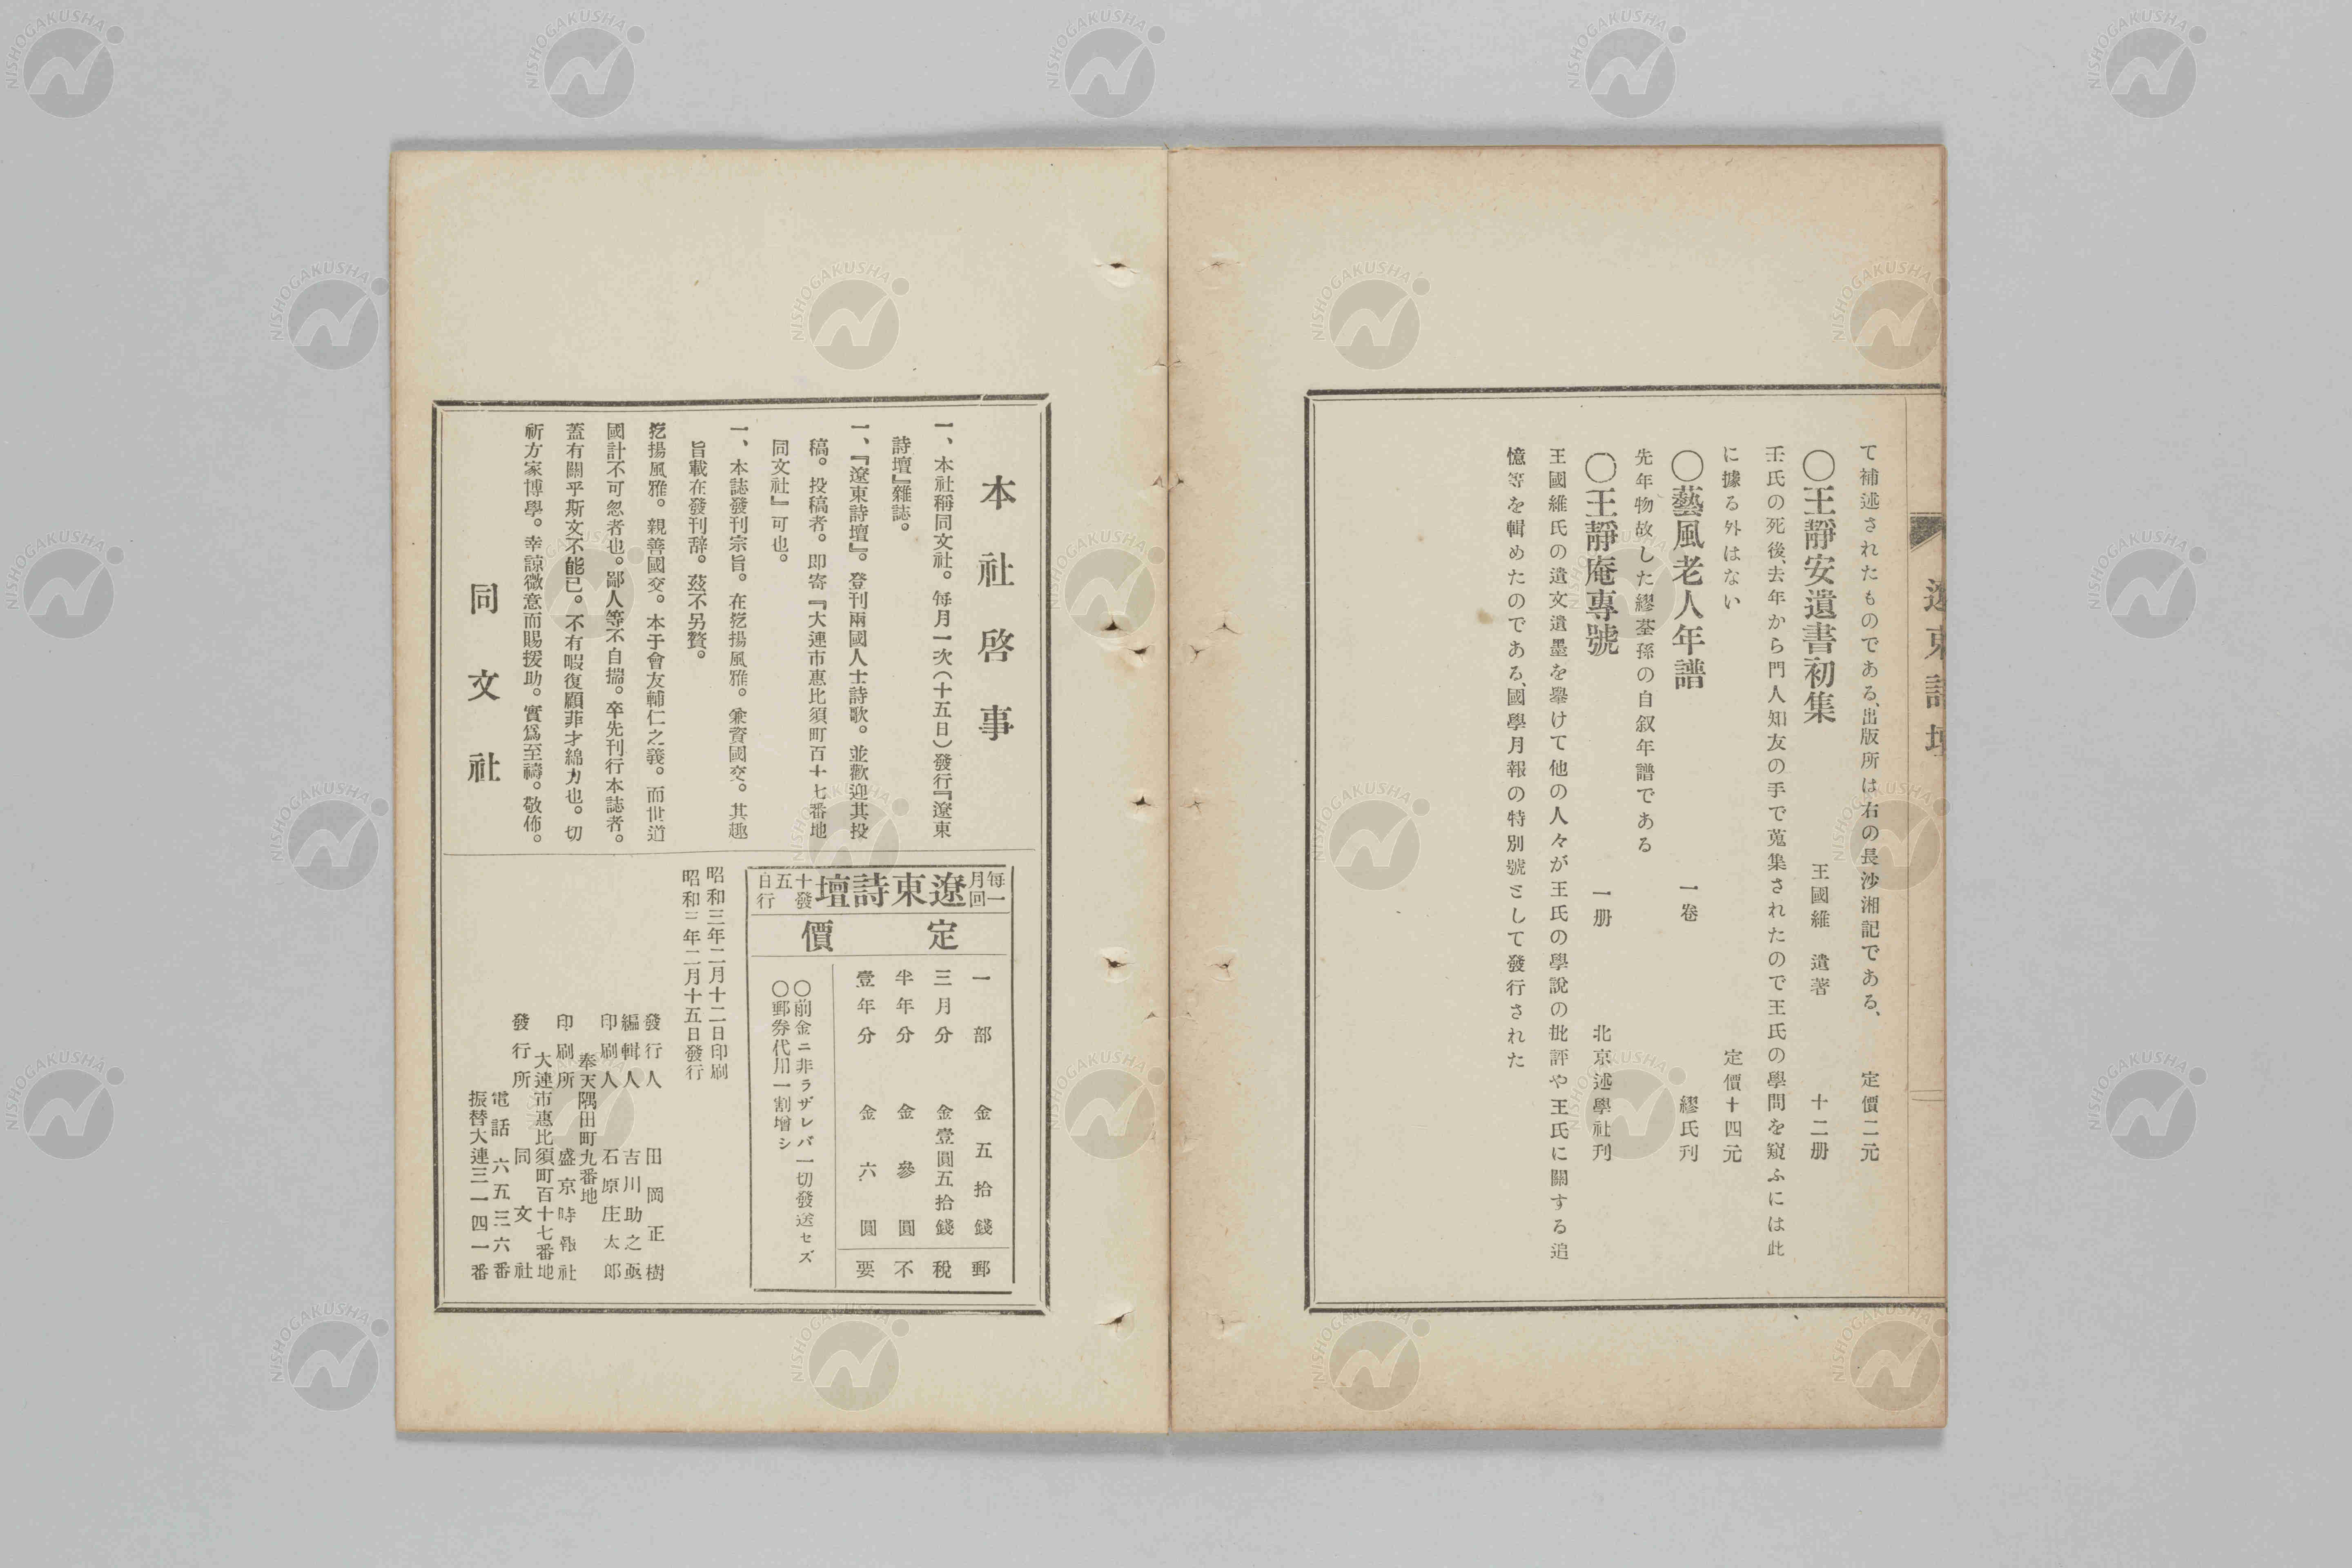 遼東詩壇
て補述されたものである、出版所は右の長沙湘記である、 定價二元
〇王靜安遺書初集 王國維 遺著 十二册
王氏の死後、去年から門人知友の手で蒐集されたので王氏の學問を窺ふには此
に據る外はない 定價十四元
〇藝風老人年譜 一卷 繆氏刊
先年物故した繆荃孫の自叙年譜である
〇王靜庵專號 一册 北京述學社刊
王國維氏の遺文遺墨を擧けて他の人々が王氏の學說の批評や王氏に關する追
憶等を輯めたのである、國學月報の特別號として發行された
本社啓事
一、本社稱同文社。每月一次(十五日)發行『遼東
詩壇』雜誌。
一、『遼東詩壇』。登刊兩國人士詩歌。並歡迎其投
稿。投稿者。即寄『大連市惠比須町百十七番地
同文社』可也。
一、本誌發刊宗旨。在挖揚風雅。兼資國交。其趣
旨載在發刊辞。茲不另贅。
挖揚風雅。親善國交。本于會友輔仁之義。而世道
國計不可忽者也。鄙人等不自揣。卒先刊行本誌者。
蓋有關乎斯文不能已。不有暇復顧菲才綿力也。切
祈方家博學。幸諒微意而賜援助。實爲至禱。敬佈。
同文社
每月一回 遼東詩壇 十五日發行
定價
一部 金五拾錢 郵
三月分 金壹圓五拾錢 稅
半年分 金參圓 不
壹年分 金六圓 要
〇前金ニ非ラザレバ一切發送セズ
〇郵券代用一割增シ
昭和三年二月十二日印刷
昭和三年二月十五日發行
發行人 田岡正樹
編輯人 吉川助之亟
印刷人 石原庄太郎
奉天隅田町九番地
印刷所 盛京時報社
大連市惠比須町百十七番地
發行所 同文社
電話 六五三六番
振替大連三一四一番
NISHOGAKUSHA